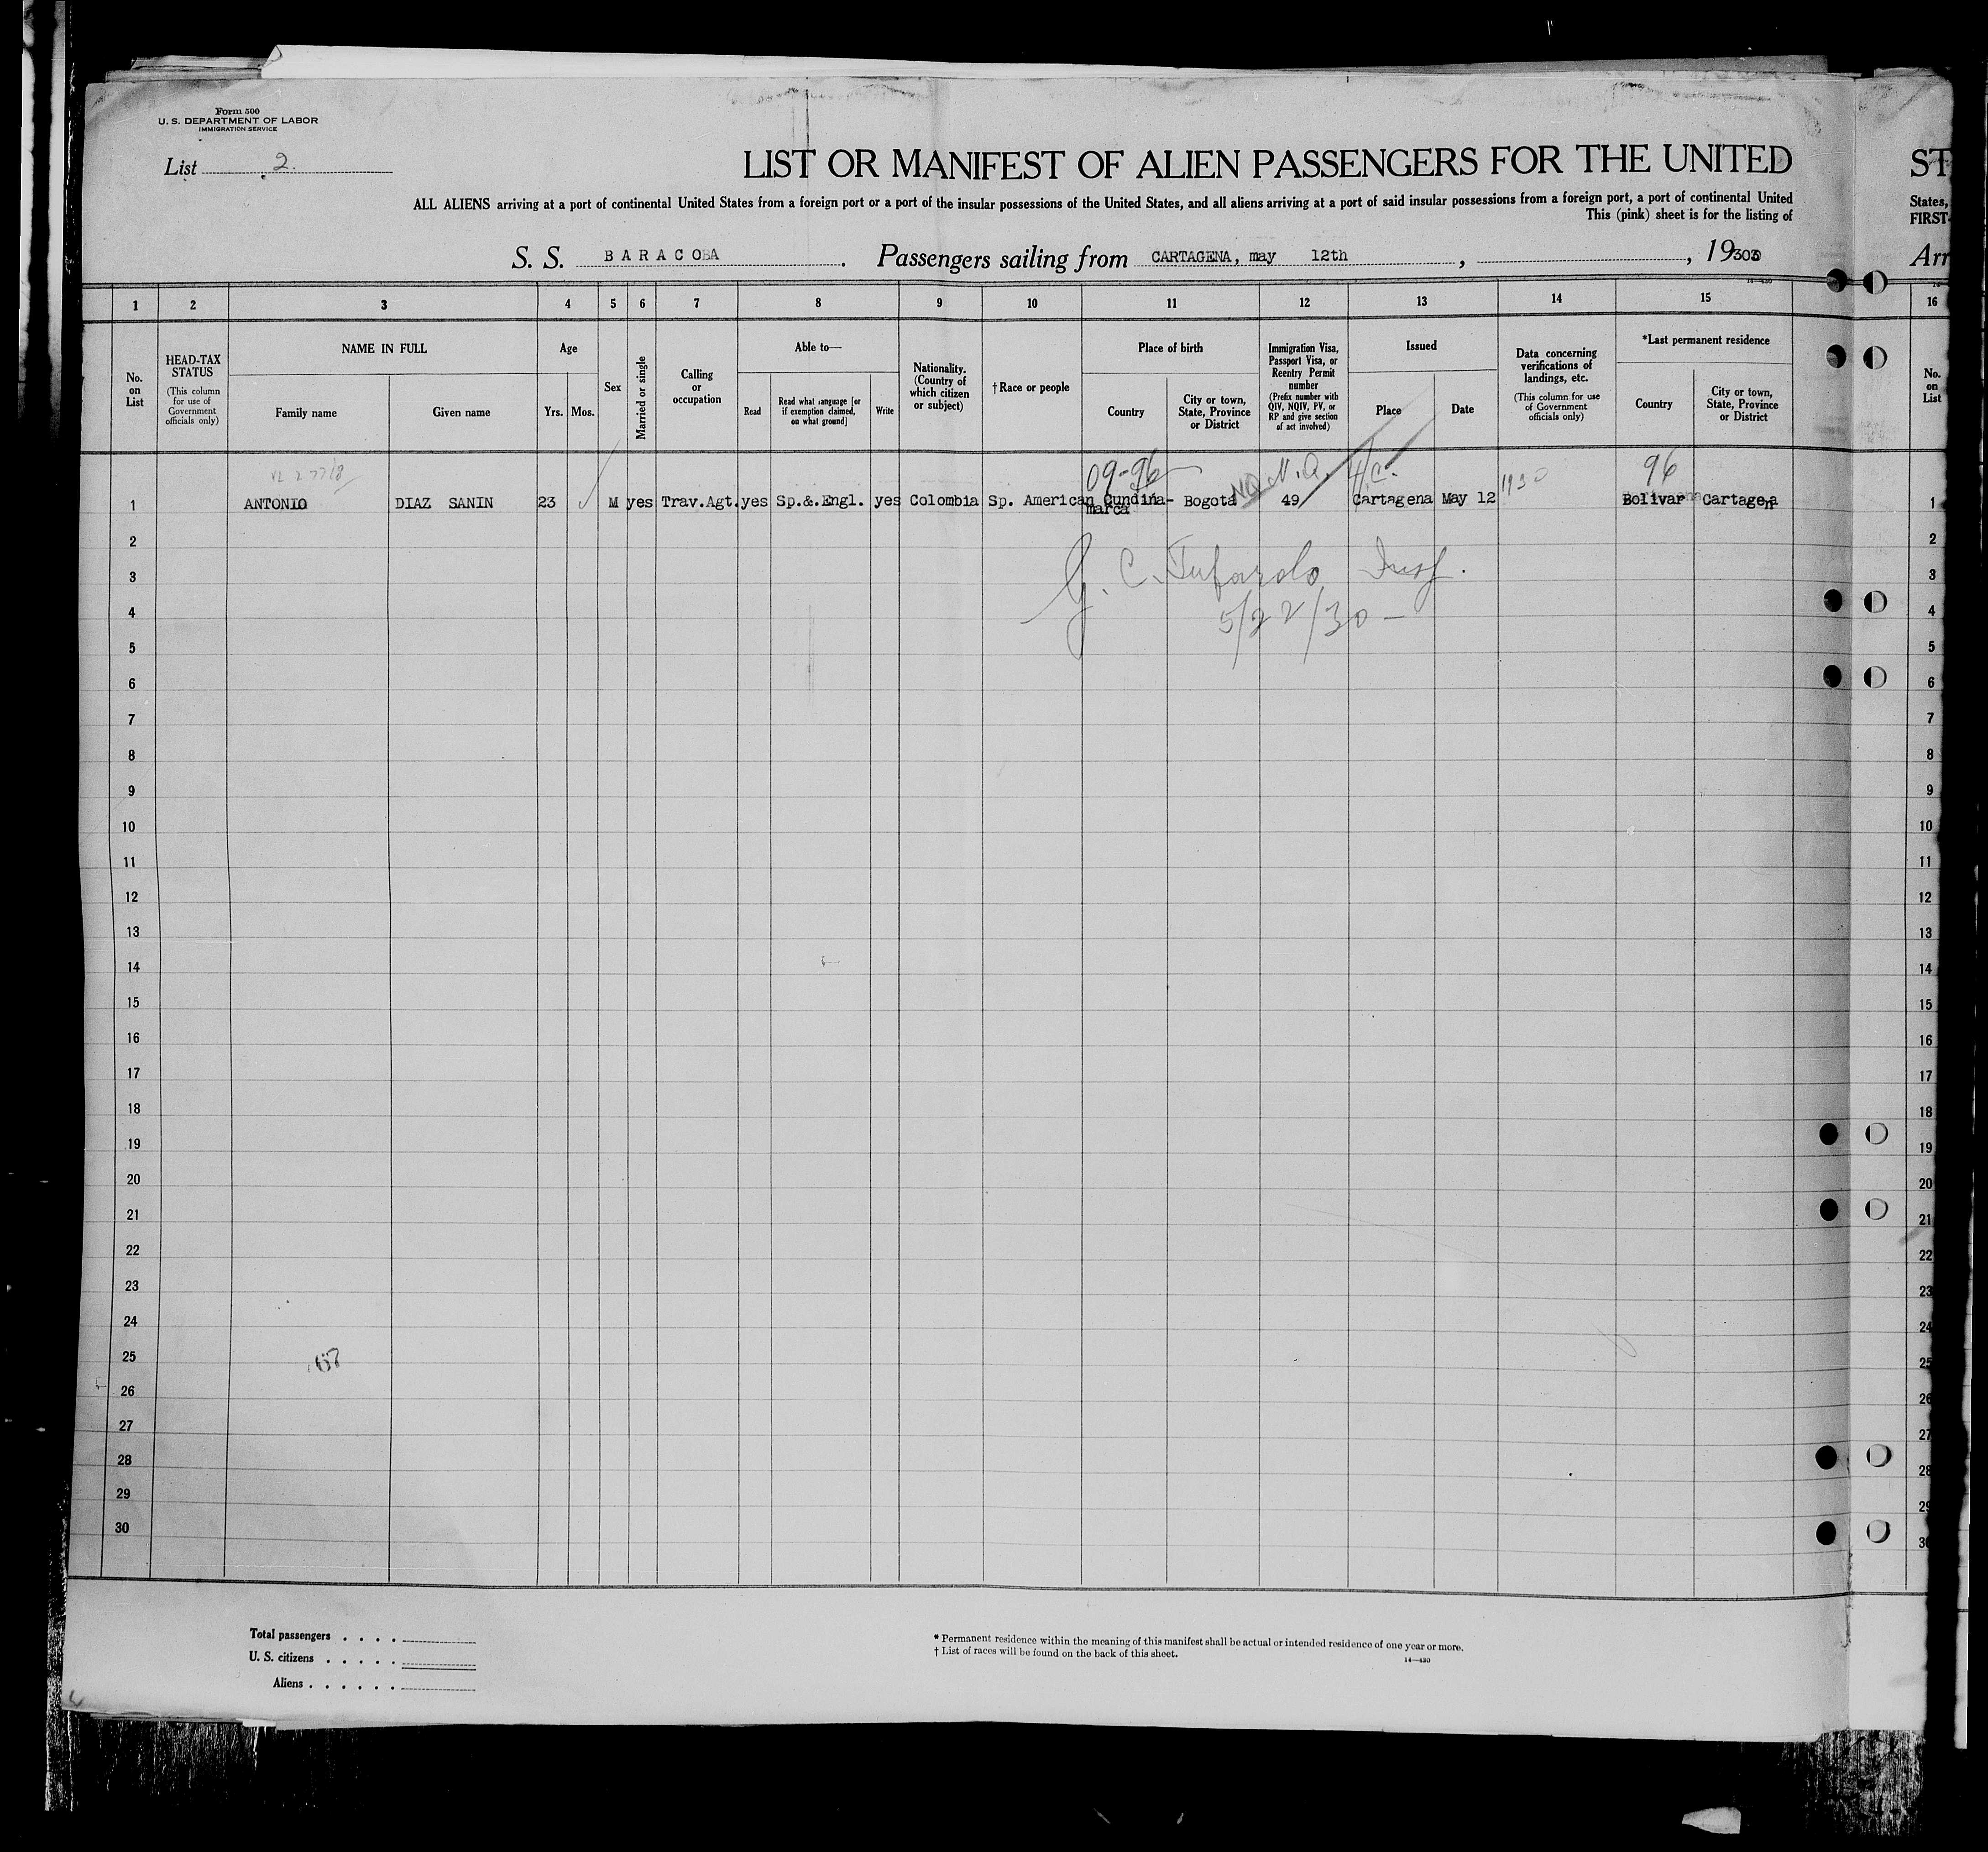 Form 500
U. S. DEPARTMENT OF LABOR
IMMIGRATION SERVICE
List 2.
LIST OR MANIFEST OF ALIEN PASSENGERS FOR THE UNITED
ST
ALL ALIENS arriving at a port of continental United States from a foreign port or a port of the insular possessions of the United States, and all aliens arriving at a port of said insular possessions from a foreign port, a port of continental United
States,
This (pink) sheet is for the listing of
FIRST-
S. S. BARACOBA. Passengers sailing from CARTAGENA, may 12th, , 19303
Arr
14-430
1 2 3 4 5 6 7 8 9 10 11 12 13 14 15 16
No. on List
HEAD-TAX STATUS
(This column for use of Government officials only)
NAME IN FULL
Family name
Given name
Age
Yrs. Mos.
Sex
Married or single
Calling or occupation
Able to—
Read
Read what language [or if exemption claimed, on what ground]
Write
Nationality. (Country of which citizen or subject)
† Race or people
Place of birth
Country
City or town, State, Province or District
Immigration Visa, Passport Visa, or Reentry Permit number
(Prefix number with QIV, NQIV, PV, or RP and give section of act involved)
Issued
Place
Date
Data concerning verifications of landings, etc.
(This column for use of Government officials only)
*Last permanent residence
Country
City or town, State, Province or District
No. on List
09-96
96
1930
1 ANTONIO DIAZ SANIN 23 M yes Trav.Agt. yes Sp.&.Engl. yes Colombia Sp. American Cundina- Bogotá 49 Cartagena May 12 Bolivar Cartagena 1
marca
2 2
G. C. Insp.
3 3
5/22/30 -
4 4
5 5
6 6
7 7
8 8
9 9
10 10
11 11
12 12
13 13
14 14
15 15
16 16
17 17
18 18
19 19
20 20
21 21
22 22
23 23
24 24
25 25
26 26
27 27
28 28
29 29
30 30
Total passengers . . . .
U. S. citizens . . . . .
Aliens . . . . . .
* Permanent residence within the meaning of this manifest shall be actual or intended residence of one year or more.
† List of races will be found on the back of this sheet.
14-430